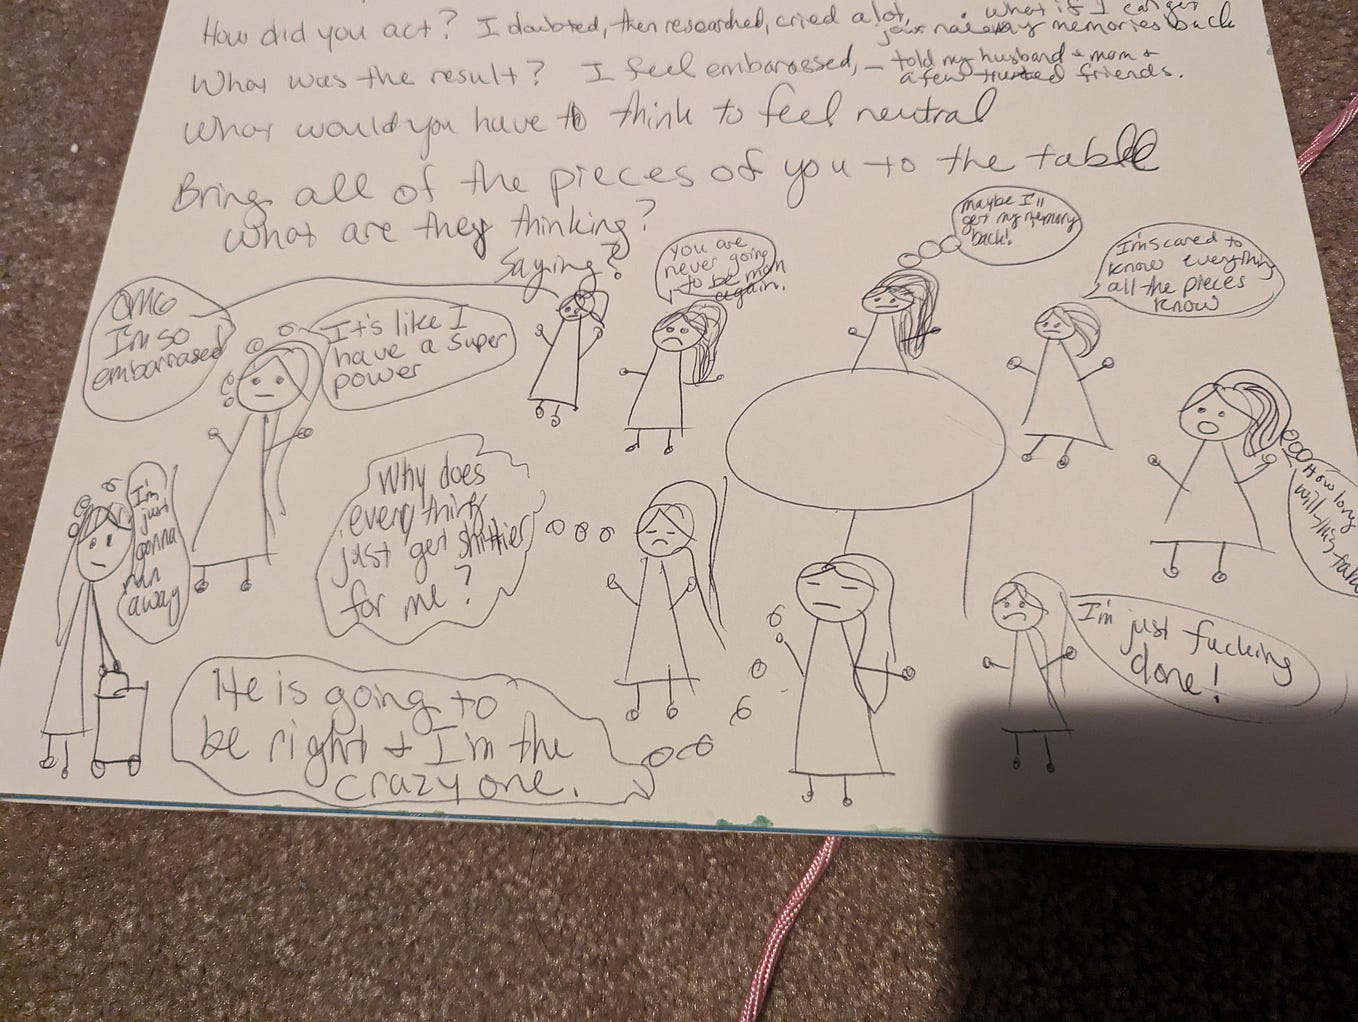 How did you act? I doubted, then researched, cried a lot, what if I can get
my memories back
What was the result? I feel embarassed, - told my husband + mom +
a few trusted friends.
What would you have to think to feel neutral
Bring all of the pieces of you to the table
What are they thinking?
Saying?
maybe I'll
get my memory
back!
you are
never going
to be man
again.
I'm scared to
know everything
all the pieces
know
OMG
I'm so
embarrased
It's like I
have a super
power
How long
will this take
Why does
everything
just get shittier
for me?
I'm
just
gonna
run
away
I'm just fucking
done!
He is going to
be right + I'm the
crazy one.